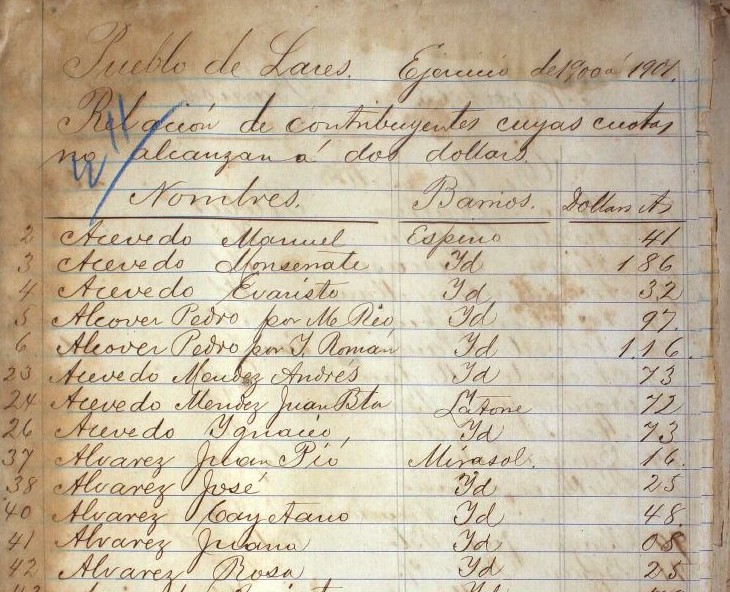 Pueblo de Lares. Ejercicio de 1900 á 1901.
Relación de contribuyentes cuyas cuotas
no alcanzan á dos dollars.
Nombres. Barrios. Dollars Cts
2 Acevedo Manuel Espino 41
3 Acevedo Monserrate Yd 1 86
4 Acevedo Evaristo Yd 32
5 Alcover Pedro por M. Rio Yd 97.
6 Alcover Pedro por J. Román Yd 1.16.
23 Acevedo Mendez Andrés Yd 73
24 Acevedo Mendez Juan Bta Latorre 72
26 Acevedo Ygnacio Yd 73
37 Alvarez Juan Pió Mirasol. 16.
38 Alvarez José Yd 25
40 Alvarez Cayetano Yd 48.
41 Alvarez Juana Yd 08
42 Alvarez Rosa Yd 25